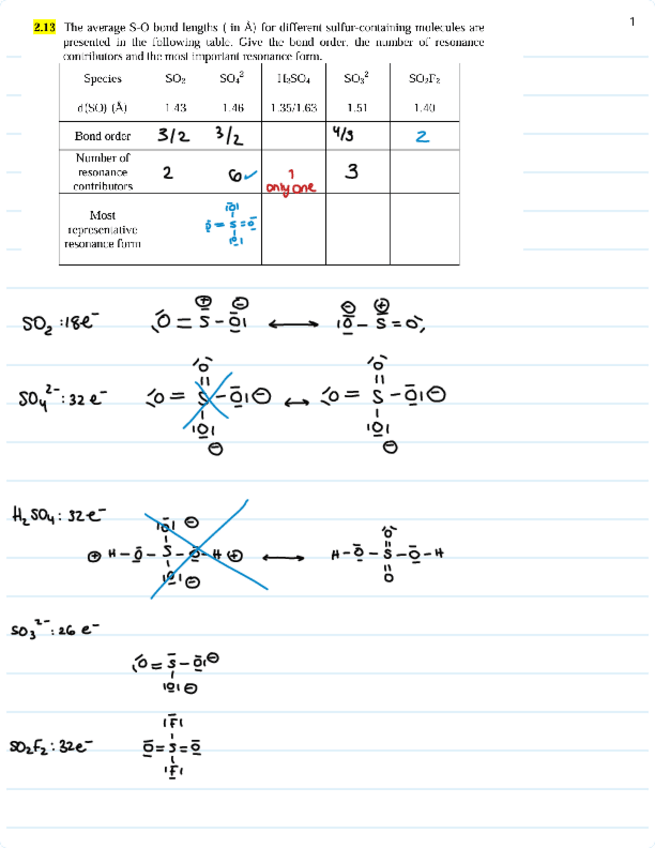 1
2.13 The average S-O bond lengths ( in Å) for different sulfur-containing molecules are
presented in the following table. Give the bond order, the number of resonance
contributors and the most important resonance form.
Species SO₂ SO₄² H₂SO₄ SO₃² SO₂F₂
d(SO) (Å) 1.43 1.46 1.35/1.63 1.51 1.40
Bond order 3/2 3/2 4/3 2
Number of
resonance
contributors
2 6 ✓ 1 3
only one
Most
representative
resonance form
|O̅|
O̲̅ = S = O̲̅
|O̲|
SO₂ : 18e⁻ O = S̅ - O̲̅| ⟷ |O̲̅ - S̅ = O
⊕ ⊖ ⊖ ⊕
O
||
SO₄²⁻ : 32 e⁻ |O = S - O̲̅| ⊖ ↔ |O = S - O̲̅| ⊖
|O̲| |O̲|
⊖ ⊖
H₂SO₄ : 32e⁻ |O̅| ⊖
⊕ H - O̲̅ - S - O̲̅ - H ⊕ ⟷ H - O̲̅ - S - O̲̅ - H
|O̲| ⊖ O
SO₃²⁻ : 26 e⁻
|O = S̅ - O̲̅| ⊖
|O̲| ⊖
|F̅|
SO₂F₂ : 32e⁻ O̲̅ = S = O̲̅
|F̲|